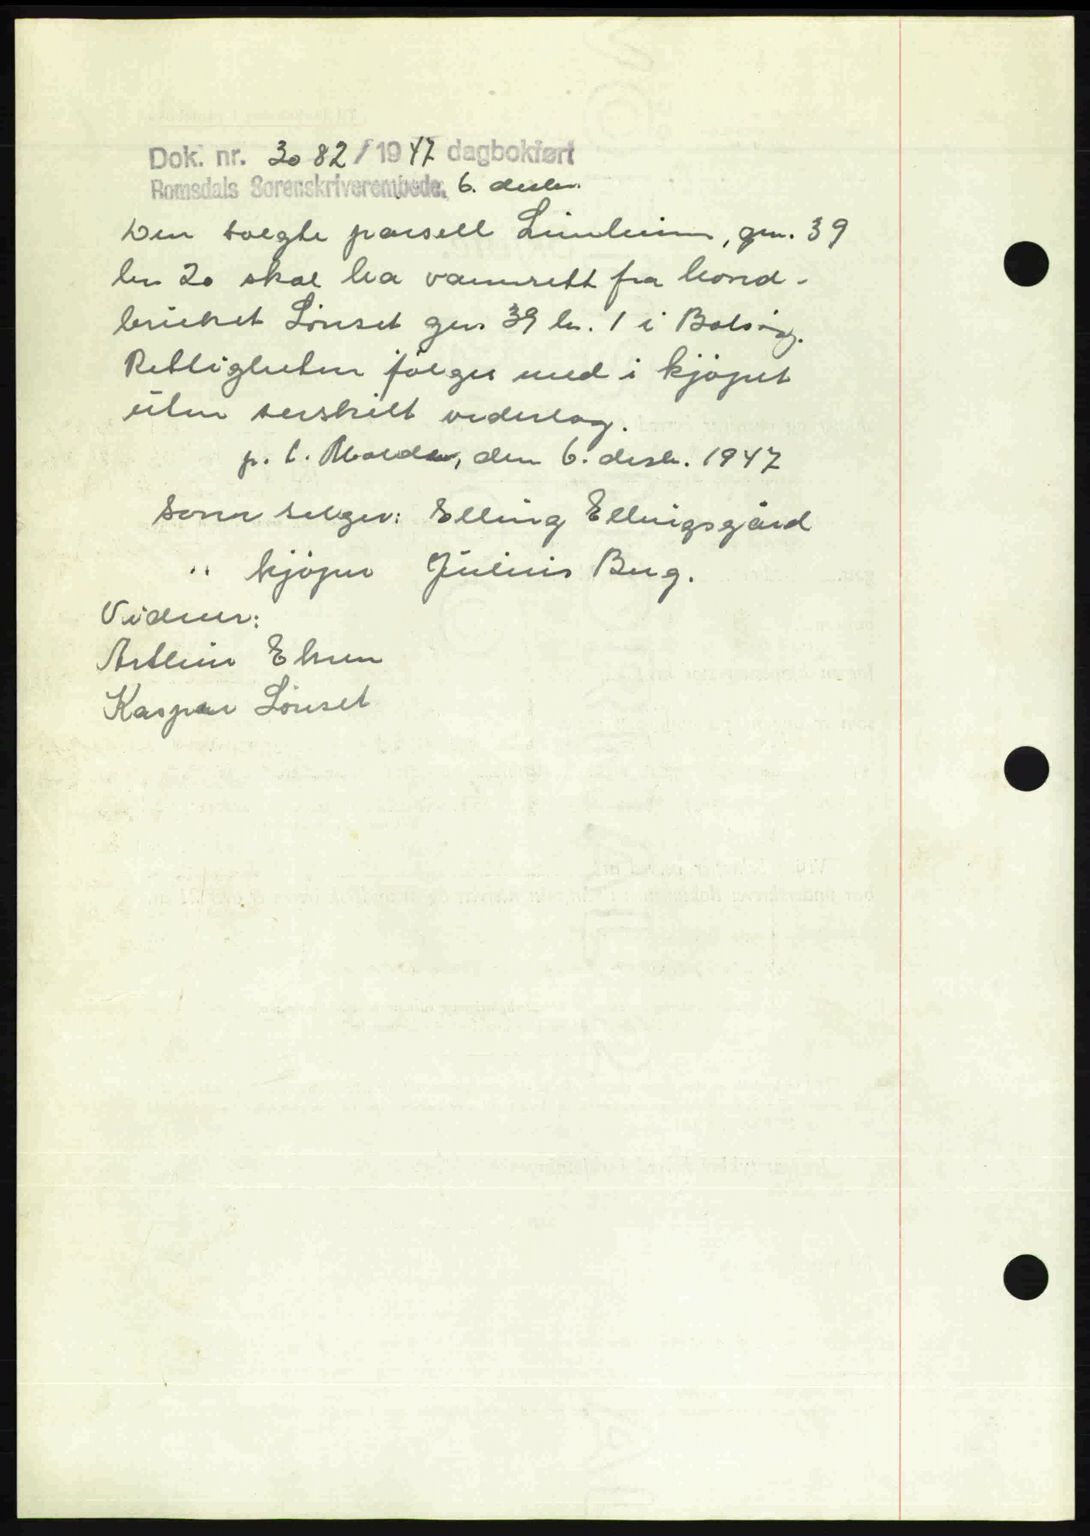 Dok. nr. 3082/1947 dagbokført
Romsdals Sorenskriverembede, 6. desbr.
Den solgte parsell Linheim, gnr. 39
bn 20 skal ha vannrett fra hoved-
bruket Lönset gnr 39 bn. 1 i Bolsöy.
Rettigheten fölger med i kjöpet
uten serskilt vederlag.
p. t. Molde, den 6. desb. 1947
Som selger: Elling Ellingsgård
" kjöper Julius Berg.
Vidner:
Arthur
Kaspar Lönset